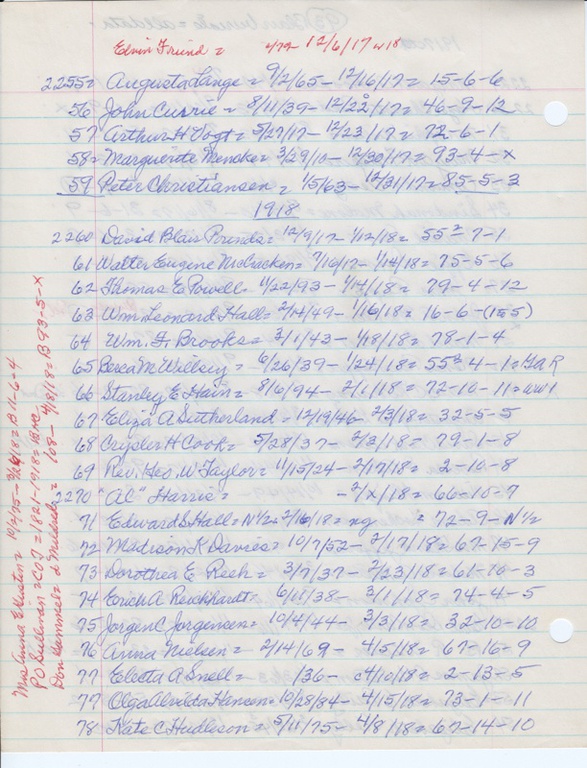 Edwin Friend = 4/79- 12/6/17 w18
2255= Augusta Lange = 9/2/65 - 12/16/17 = 15-6-6
56 John Currie = 8/11/39 - 12/22/17 = 46-9-12
57 Arthur H Vogt = 5/27/17 - 12/23/17 = 72-6-1
58= Marguerite Mencke = 3/29/10 - 12/30/17 = 93-4-x
59 Peter Christiansen = 1/5/63 - 12/31/17 = 85-5-3
1918
2260 David Blair = 12/9/17 - 1/12/18 = 55 2 7-1
61 Walter Eugene McCracken = 7/10/17 - 1/14/18 = 75-5-6
62 Thomas E Powell = 1/22/93 - 1/14/18 = 79-4-12
63 Wm Leonard Hall = 2/14/49 - 1/16/18 = 16-6-(1=5)
64 Wm. F. Brooks = 3/1/43 - 1/18/18 = 78-1-4
65 M. Willsey = 6/26/39 - 1/24/18 = 55 3 4-1= GAR
66 Stanley E Hain = 8/6/94 - 2/1/18 = 72-10-11= ww1
67 Eliza A Sutherland = 12/19/46 - 2/3/18 = 32-5-5
68 Crysler H Cook = 5/28/37 - 2/3/18 = 79-1-8
69 Rev. Geo. W Taylor = 11/15/24 - 2/17/18 = 2-10-8
2270 "AC" Harris = -2/x/18 = 66-10-7
71 Edward S Hall = N 1/2 = 2/16/18 = ng = 72-9-N 1/2
72 Madison K Davies = 10/7/52 - 2/17/18 = 67-15-9
73 Dorothea E Resh = 3/7/37 - 2/23/18 = 61-10-3
74 Erich A Reickhardt = 6/11/38 - 3/1/18 = 74-4-5
75 Jorgen C Jorgensen = 10/4/44 - 3/3/18 = 32-10-10
76 Anna Nielsen = 2/14/69 - 4/5/18 = 67-16-9
77 Electa A Snell = /36 - c4/10/18 = 2-13-5
77 Olga Alvilda Hansen = 10/28/84 - 4/15/18 = 73-1-11
78 Kate C Hudlson = 5/11/75 - 4/8/18 = 67-14-10
Mrs Anna E = 10/2/75 - /18 = B 11-6-4
PO Sullivan = COJ = 1821-1918 =
Don = 108 - 4/8/18 = B 93-5-x